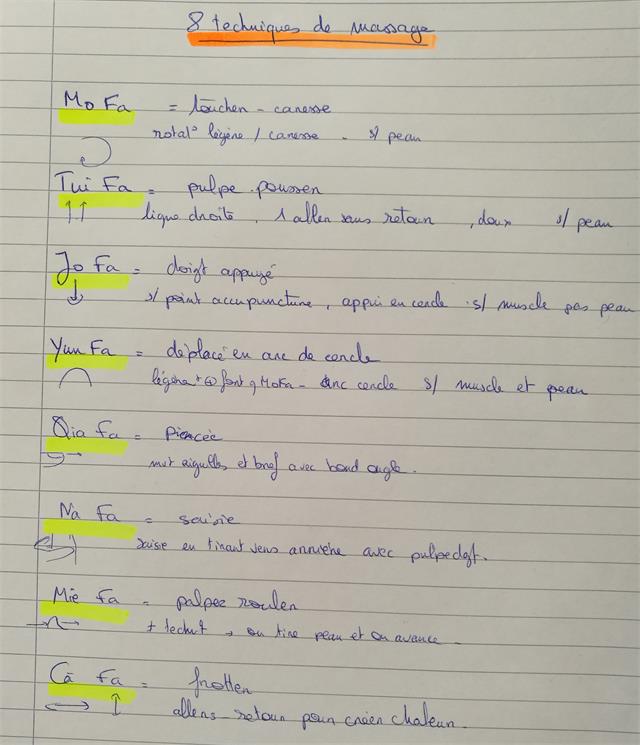 8 techniques de massage
Mo Fa = toucher - caresse
rotat° légère / caresse - s/ peau
Tui Fa = pulpe pousser
ligne droite, 1 aller sans retour, doux s/ peau
Jo Fa = doigt appuyé
s/ point accupuncture, appui en cercle s/ muscle pas peau
Yun Fa = déplacé en arc de cercle
légère + fort q MoFa - arc cercle s/ muscle et peau
Qia Fa = pincée
mvt aiguilles et bref avec bord ongle.
Na Fa = saisie
saisie en tirant vers arrière avec pulpe dgt.
Mie Fa = palper rouler
on tire peau et on avance -
Cā Fa = frotter
allers-retour pour créer chaleur.